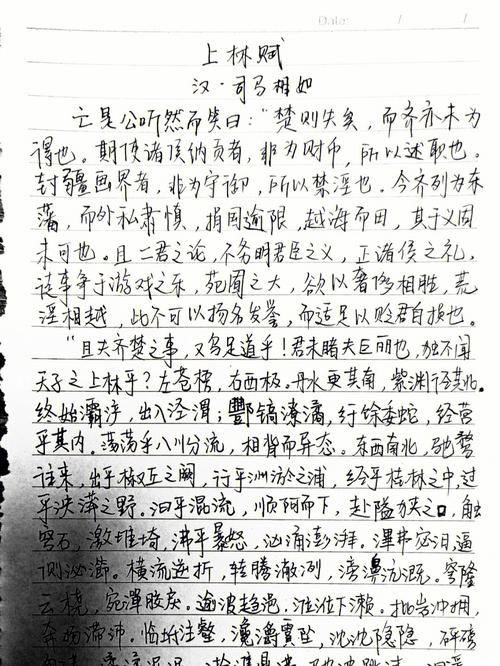 Date: / /
上林赋
汉·司马相如
亡是公听然而笑曰："楚则失矣，而齐亦未为
得也。期使诸侯纳贡者，非为财币，所以述职也。
封疆画界者，非为守御，所以禁淫也。今齐列为东
藩，而外私肃慎，捐国逾限，越海而田，其于义固
未可也。且二君之论，不务明君臣之义，正诸侯之礼，
徒事争于游戏之乐，苑囿之大，欲以奢侈相胜，荒
淫相越，此不可以扬名发誉，而适足以贬君自损也。
"且夫齐楚之事，又乌足道乎！君未睹夫巨丽也，独不闻
天子之上林乎？左苍梧，右西极。丹水更其南，紫渊径其北。
终始灞浐，出入泾渭；酆镐潦潏，纡徐委蛇，经营
乎其内。荡荡乎八川分流，相背而异态。东西南北，驰骛
往来，出乎椒丘之阙，行乎洲淤之浦，经乎桂林之中，过
乎泱漭之野。汩乎混流，顺阿而下，赴隘狭之口，触
穹石，激堆埼，沸乎暴怒，汹涌澎湃。滭弗宓汩，逼
侧泌瀄。横流逆折，转腾潎洌，滂濞沆溉。穹隆
云桡，宛潬胶戾。逾波趋浥，涖涖下濑。批岩冲拥，
奔扬滞沛。临坻注壑，瀺灂霣坠，沈沈隐隐，砰磅